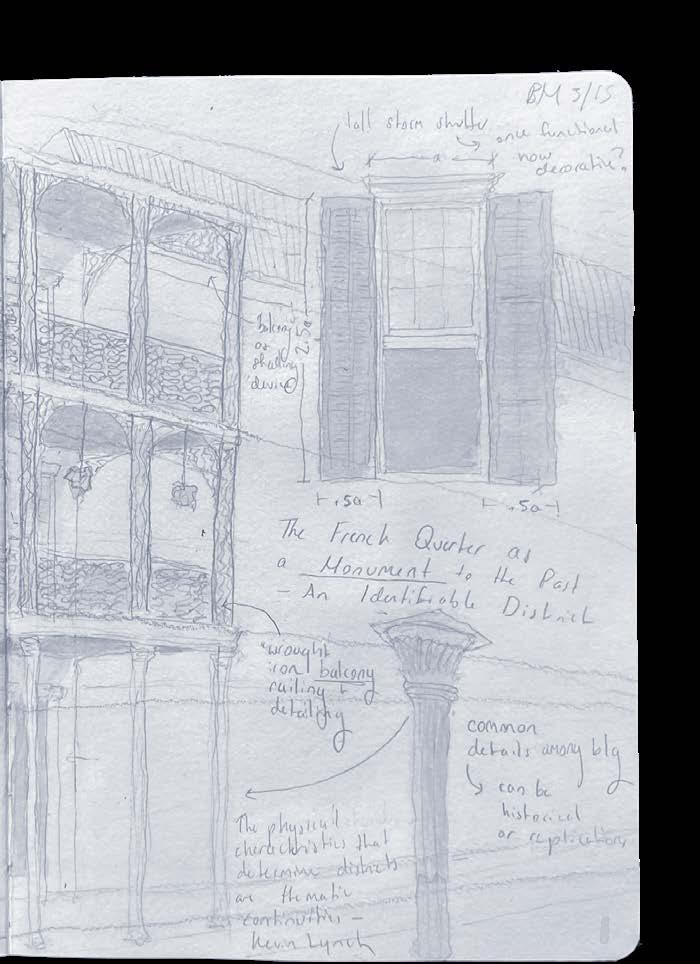 BM 3/15
tall storm shutter
once functional
now
decorative?
a
balcony
as
shading
device
2.5a
.5a
.5a
The French Quarter as
a Monument to the Past
- An Identifiable District
wrought
iron balcony
railing &
detailing
common
details among blg
can be
historical
or replications
The physical
characteristics that
determine districts
are thematic
continuities -
Kevin Lynch